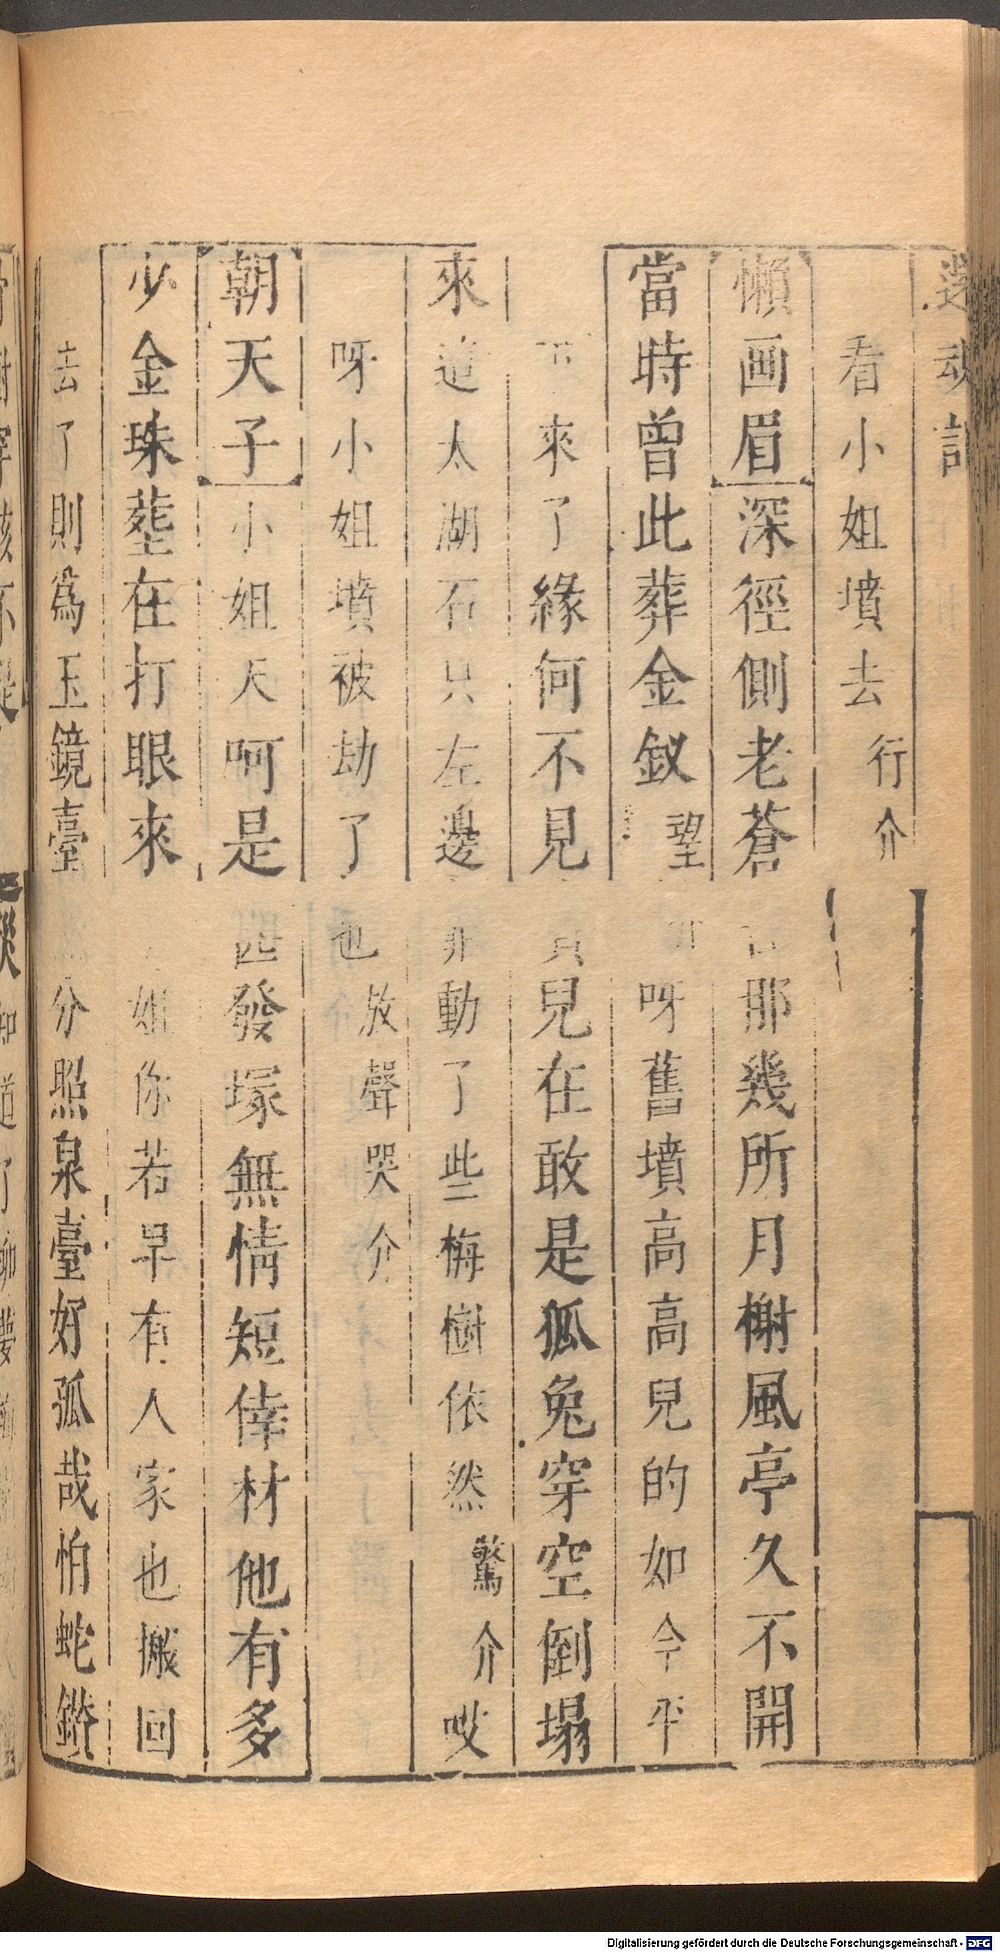 還魂記
看小姐墳去行介
懶画眉深徑側老蒼苔那幾所月榭風亭久不開
當時曾此葬金釵望介呀舊墳高高兒的如今平
下來了緣何不見墳兒在敢是狐兔穿空倒塌
來這太湖石只左邊靠動了些梅樹依然驚介哎
呀小姐墳被劫了也放聲哭介
朝天子小姐天呵是四發塚無情短倖材他有多
少金珠塟在打眼來小姐你若早有人家也搬回
去了則為玉鏡臺無分照泉臺好孤哉怕蛇鑽
Digitalisierung gefördert durch die Deutsche Forschungsgemeinschaft - DFG